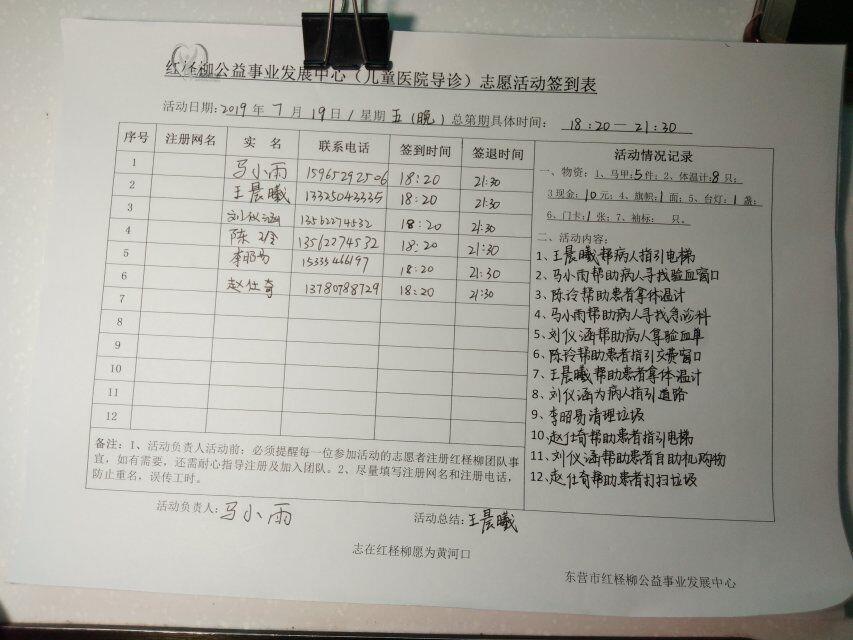 红柽柳公益事业发展中心（儿童医院导诊）志愿活动签到表
活动日期：2019年7月19日/星期五（晚）总第期具体时间：18:20—21:30
序号 注册网名 实名 联系电话 签到时间 签退时间 活动情况记录
1 马小雨 15965292506 18:20 21:30
2 王晨曦 13325042335 18:20 21:30
3 刘仪涵 13562274532 18:20 21:30
4 陈玲 13562774532 18:20 21:30
5 李昭易 15335466197 18:20 21:30
6 赵仕奇 13780788729 18:20 21:30
7
8
9
10
11
12
一、物资：1、马甲：5件；2、体温计：8只；
3现金：10元；4、旗帜：1面；5、台灯：1盏；
6、门卡：1张；7、袖标：只。
二、活动内容：
1、王晨曦帮病人指引电梯
2、马小雨帮助病人寻找验血窗口
3、陈玲帮助患者拿体温计
4、马小雨帮助病人寻找急诊科
5、刘仪涵帮助病人拿验血单
6、陈玲帮助患者指引交费窗口
7、王晨曦帮助患者拿体温计
8、刘仪涵为病人指引道路
9、李昭易清理垃圾
10、赵仕奇帮助患者指引电梯
11、刘仪涵帮助患者自助机购物
12、赵仕奇帮助患者打扫垃圾
备注：1、活动负责人活动前：必须提醒每一位参加活动的志愿者注册红柽柳团队事
宜，如有需要，还需耐心指导注册及加入团队。2、尽量填写注册网名和注册电话，
防止重名，误传工时。
活动负责人：马小雨 活动总结：王晨曦
志在红柽柳愿为黄河口
东营市红柽柳公益事业发展中心